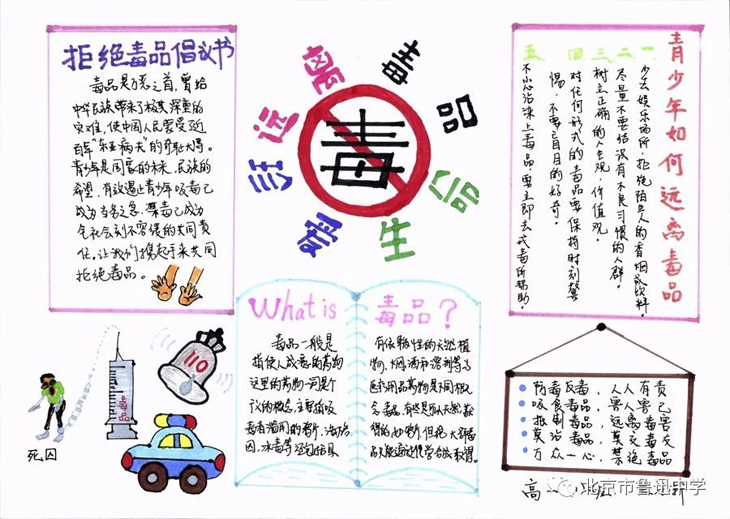 拒绝毒品倡议书
毒品是万恶之首,曾给
中华民族带来了极其深重的
灾难,使中国人民蒙受近
百年"东亚病夫"的奇耻大辱。
青少年是国家的未来,民族的
希望,有效遏止青少年吸毒已
成为当务之急,禁毒已成为
全社会刻不容缓的共同责
任,让我们携起手来共同
拒绝毒品。
远离毒品
珍爱生命
毒
青少年如何远离毒品
一 少去娱乐场所,拒绝陌生人的香烟或饮料。
二 尽量不要结识有不良习惯的人群。
三 树立正确的人生观,价值观。
四 对任何形式的毒品要保持时刻警
惕,不要盲目的好奇。
五 不小心沾染上毒品,要立即去戒毒所帮助。
What is 毒品?
毒品一般是
指使人成瘾的药物
这里的药物一词是个
广义的概念,主要指吸
毒者滥用的鸦片、海洛
因、冰毒等 还包括具
有依赖性的天然植
物、烟、酒和溶剂等与
医疗用品药物是不同概
念 毒品有些是可以天然获
得的如鸦片 但绝大部分毒
品只能通过化学合成取得。
110
毒品
死囚
防毒反毒,人人有责
吸食毒品,害人害己
抵制毒品,远离毒害
莫沾毒品,莫交毒友
万众一心,禁绝毒品
高一
北京市鲁迅中学